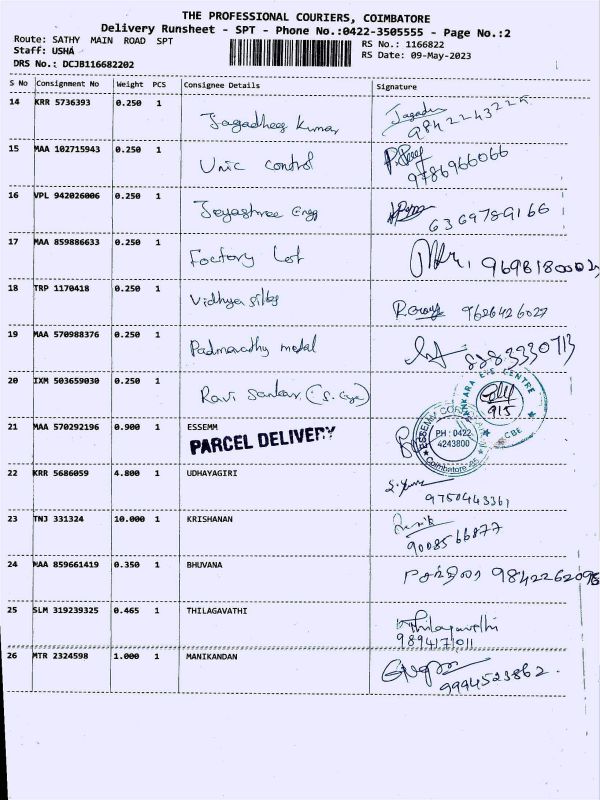 THE PROFESSIONAL COURIERS, COIMBATORE
Delivery Runsheet - SPT - Phone No.:0422-3505555 - Page No.:2
Route: SATHY MAIN ROAD SPT
RS No.: 1166822
Staff: USHA
RS Date: 09-May-2023
DRS No.: DCJB116682202
S No Consignment No Weight PCS Consignee Details Signature
14 KRR 5736393 0.250 1
Jagadhees Kumar
15 MAA 102715943 0.250 1
Unic control 9786966066
16 VPL 942026006 0.250 1
Jeyashree Engg 6369789166
17 MAA 859886633 0.250 1
Factory Lot
18 TRP 1170418 0.250 1
Vidhya silks 9626426027
19 MAA 570988376 0.250 1
Padmavathy metal 8883330713
20 IXM 503659030 0.250 1
Ravi Sankar (S. Eye) 915
SANKARA EYE CENTRE
CBE
21 MAA 570292196 0.900 1 ESSEMM
PARCEL DELIVERY
ESSEMM CORPORATION
PH : 0422
4243800
Coimbatore
22 KRR 5686059 4.800 1 UDHAYAGIRI
9750443361
23 TNJ 331324 10.000 1 KRISHANAN
9008566877
24 MAA 859661419 0.350 1 BHUVANA
9842262098
25 SLM 319239325 0.465 1 THILAGAVATHI
Thilagavathi
9894171011
26 MTR 2324598 1.000 1 MANIKANDAN
9994523862